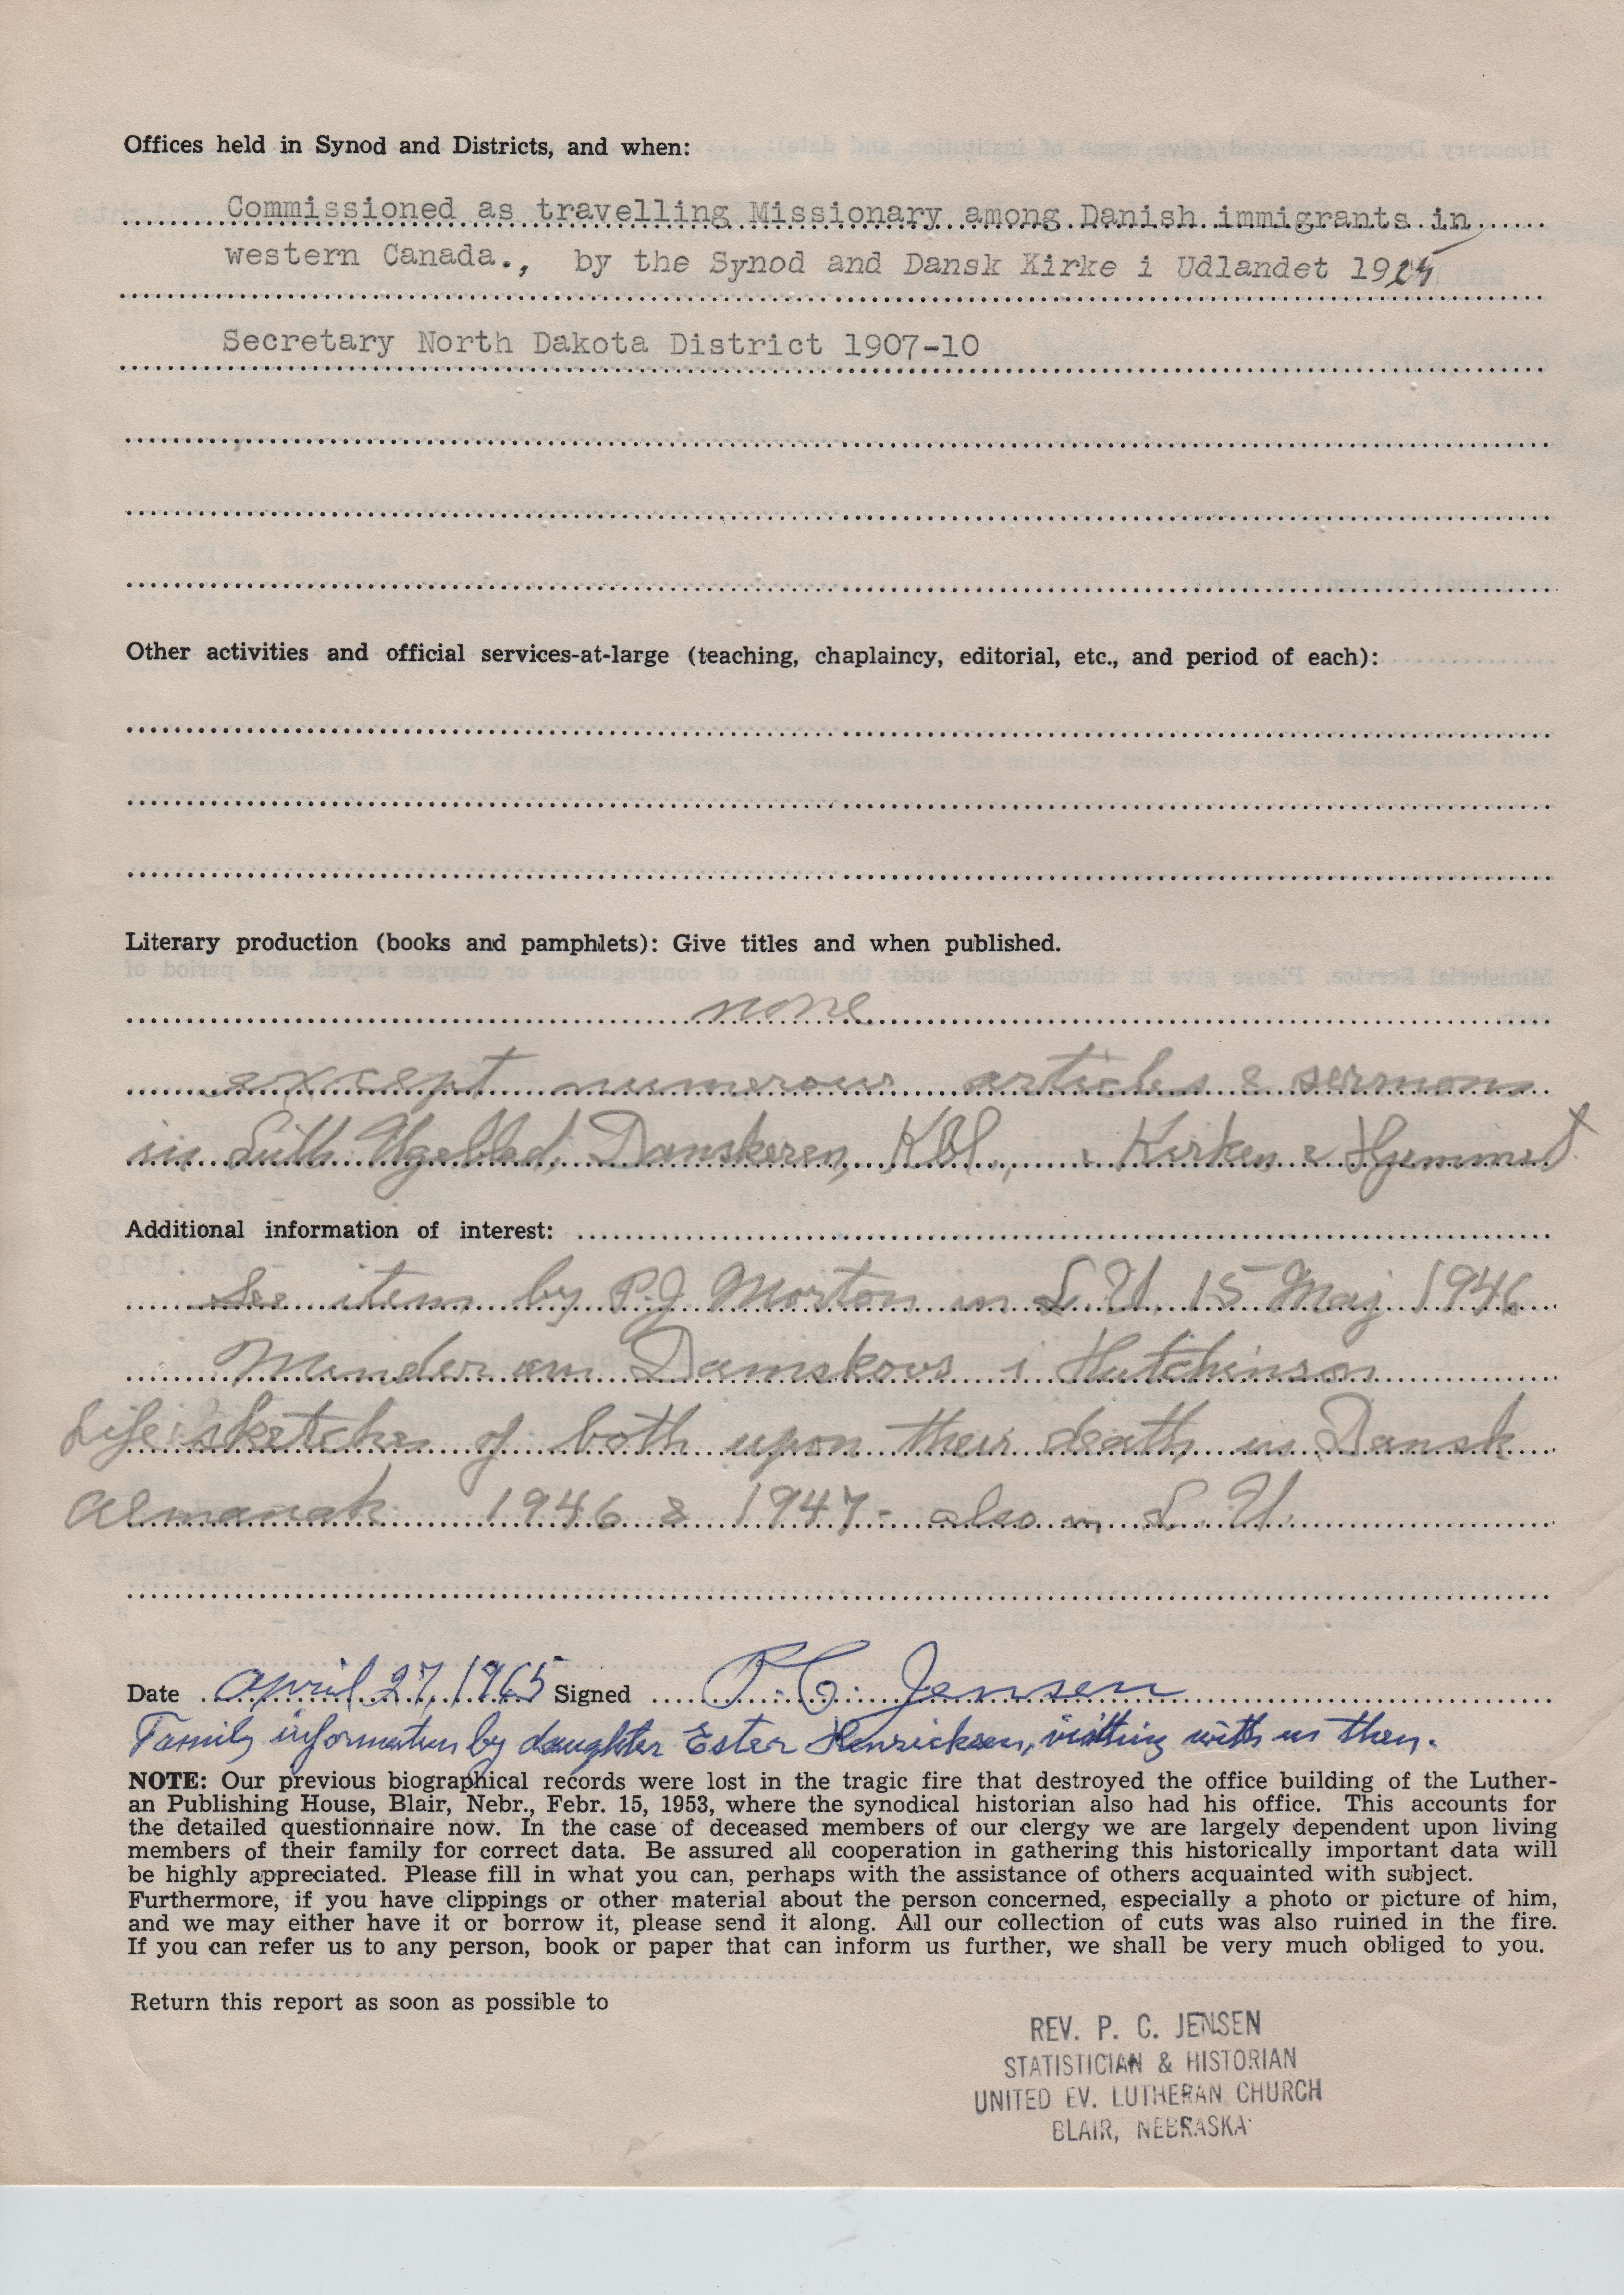 Offices held in Synod and Districts, and when:
Commissioned as travelling Missionary among Danish immigrants in
western Canada., by the Synod and Dansk Kirke i Udlandet 1925
Secretary North Dakota District 1907-10
Other activities and official services-at-large (teaching, chaplaincy, editorial, etc., and period of each):
Literary production (books and pamphlets): Give titles and when published.
none
except numerous articles & sermons
in Luth Ugeblad, Danskeren, Kbl., Kirken & Hjemmet
Additional information of interest:
See item by P.J. Morton in L.U. 15 Maj 1946
Minder om Damskovs i Hutchinson
Life sketches of both upon their death in Dansk
Almanak 1946 & 1947 - also in L.U.
Date April 27, 1965 Signed P. C. Jensen
Family information by daughter Ester Henricksen, visitting with us then.
NOTE: Our previous biographical records were lost in the tragic fire that destroyed the office building of the Luther-
an Publishing House, Blair, Nebr., Febr. 15, 1953, where the synodical historian also had his office. This accounts for
the detailed questionnaire now. In the case of deceased members of our clergy we are largely dependent upon living
members of their family for correct data. Be assured all cooperation in gathering this historically important data will
be highly appreciated. Please fill in what you can, perhaps with the assistance of others acquainted with subject.
Furthermore, if you have clippings or other material about the person concerned, especially a photo or picture of him,
and we may either have it or borrow it, please send it along. All our collection of cuts was also ruined in the fire.
If you can refer us to any person, book or paper that can inform us further, we shall be very much obliged to you.
Return this report as soon as possible to
REV. P. C. JENSEN
STATISTICIAN & HISTORIAN
UNITED EV. LUTHERAN CHURCH
BLAIR, NEBRASKA